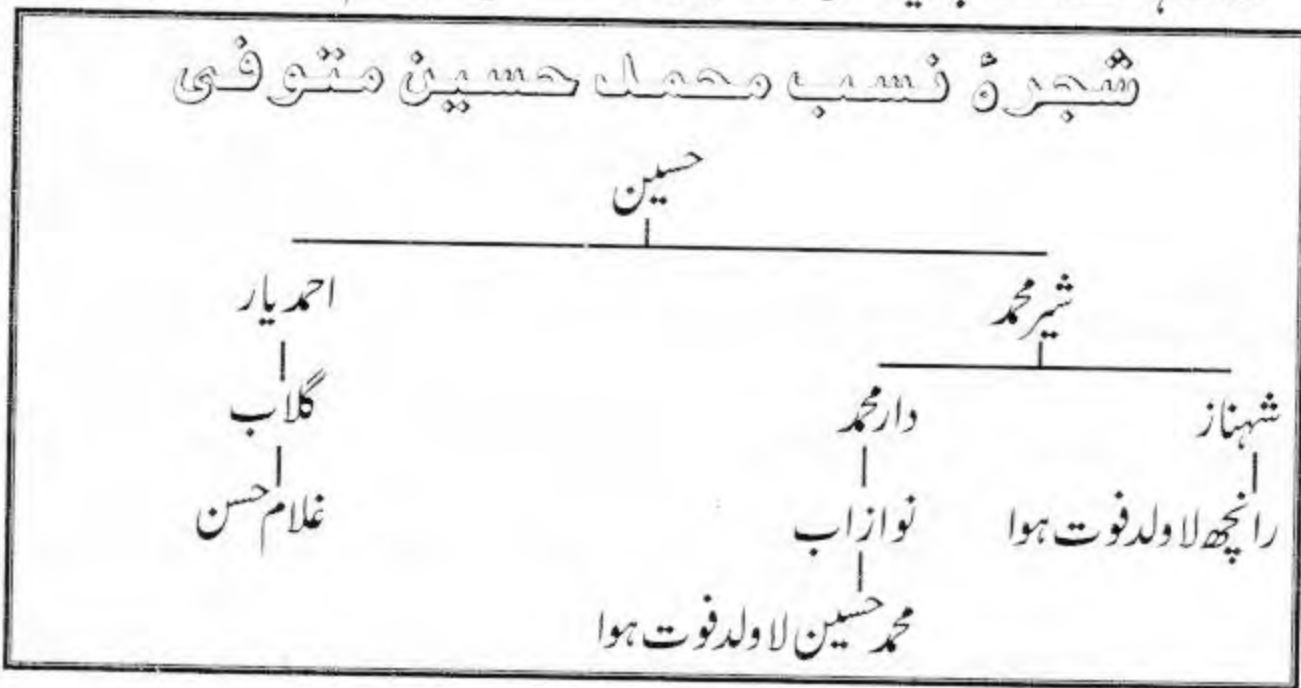 شجرۂ نسب محمد حسین متوفی
حسین
شیر محمد احمد یار
شہناز دار محمد گلاب
رانجھ لا ولد فوت ہوا نواز اب غلام حسن
محمد حسین لا ولد فوت ہوا